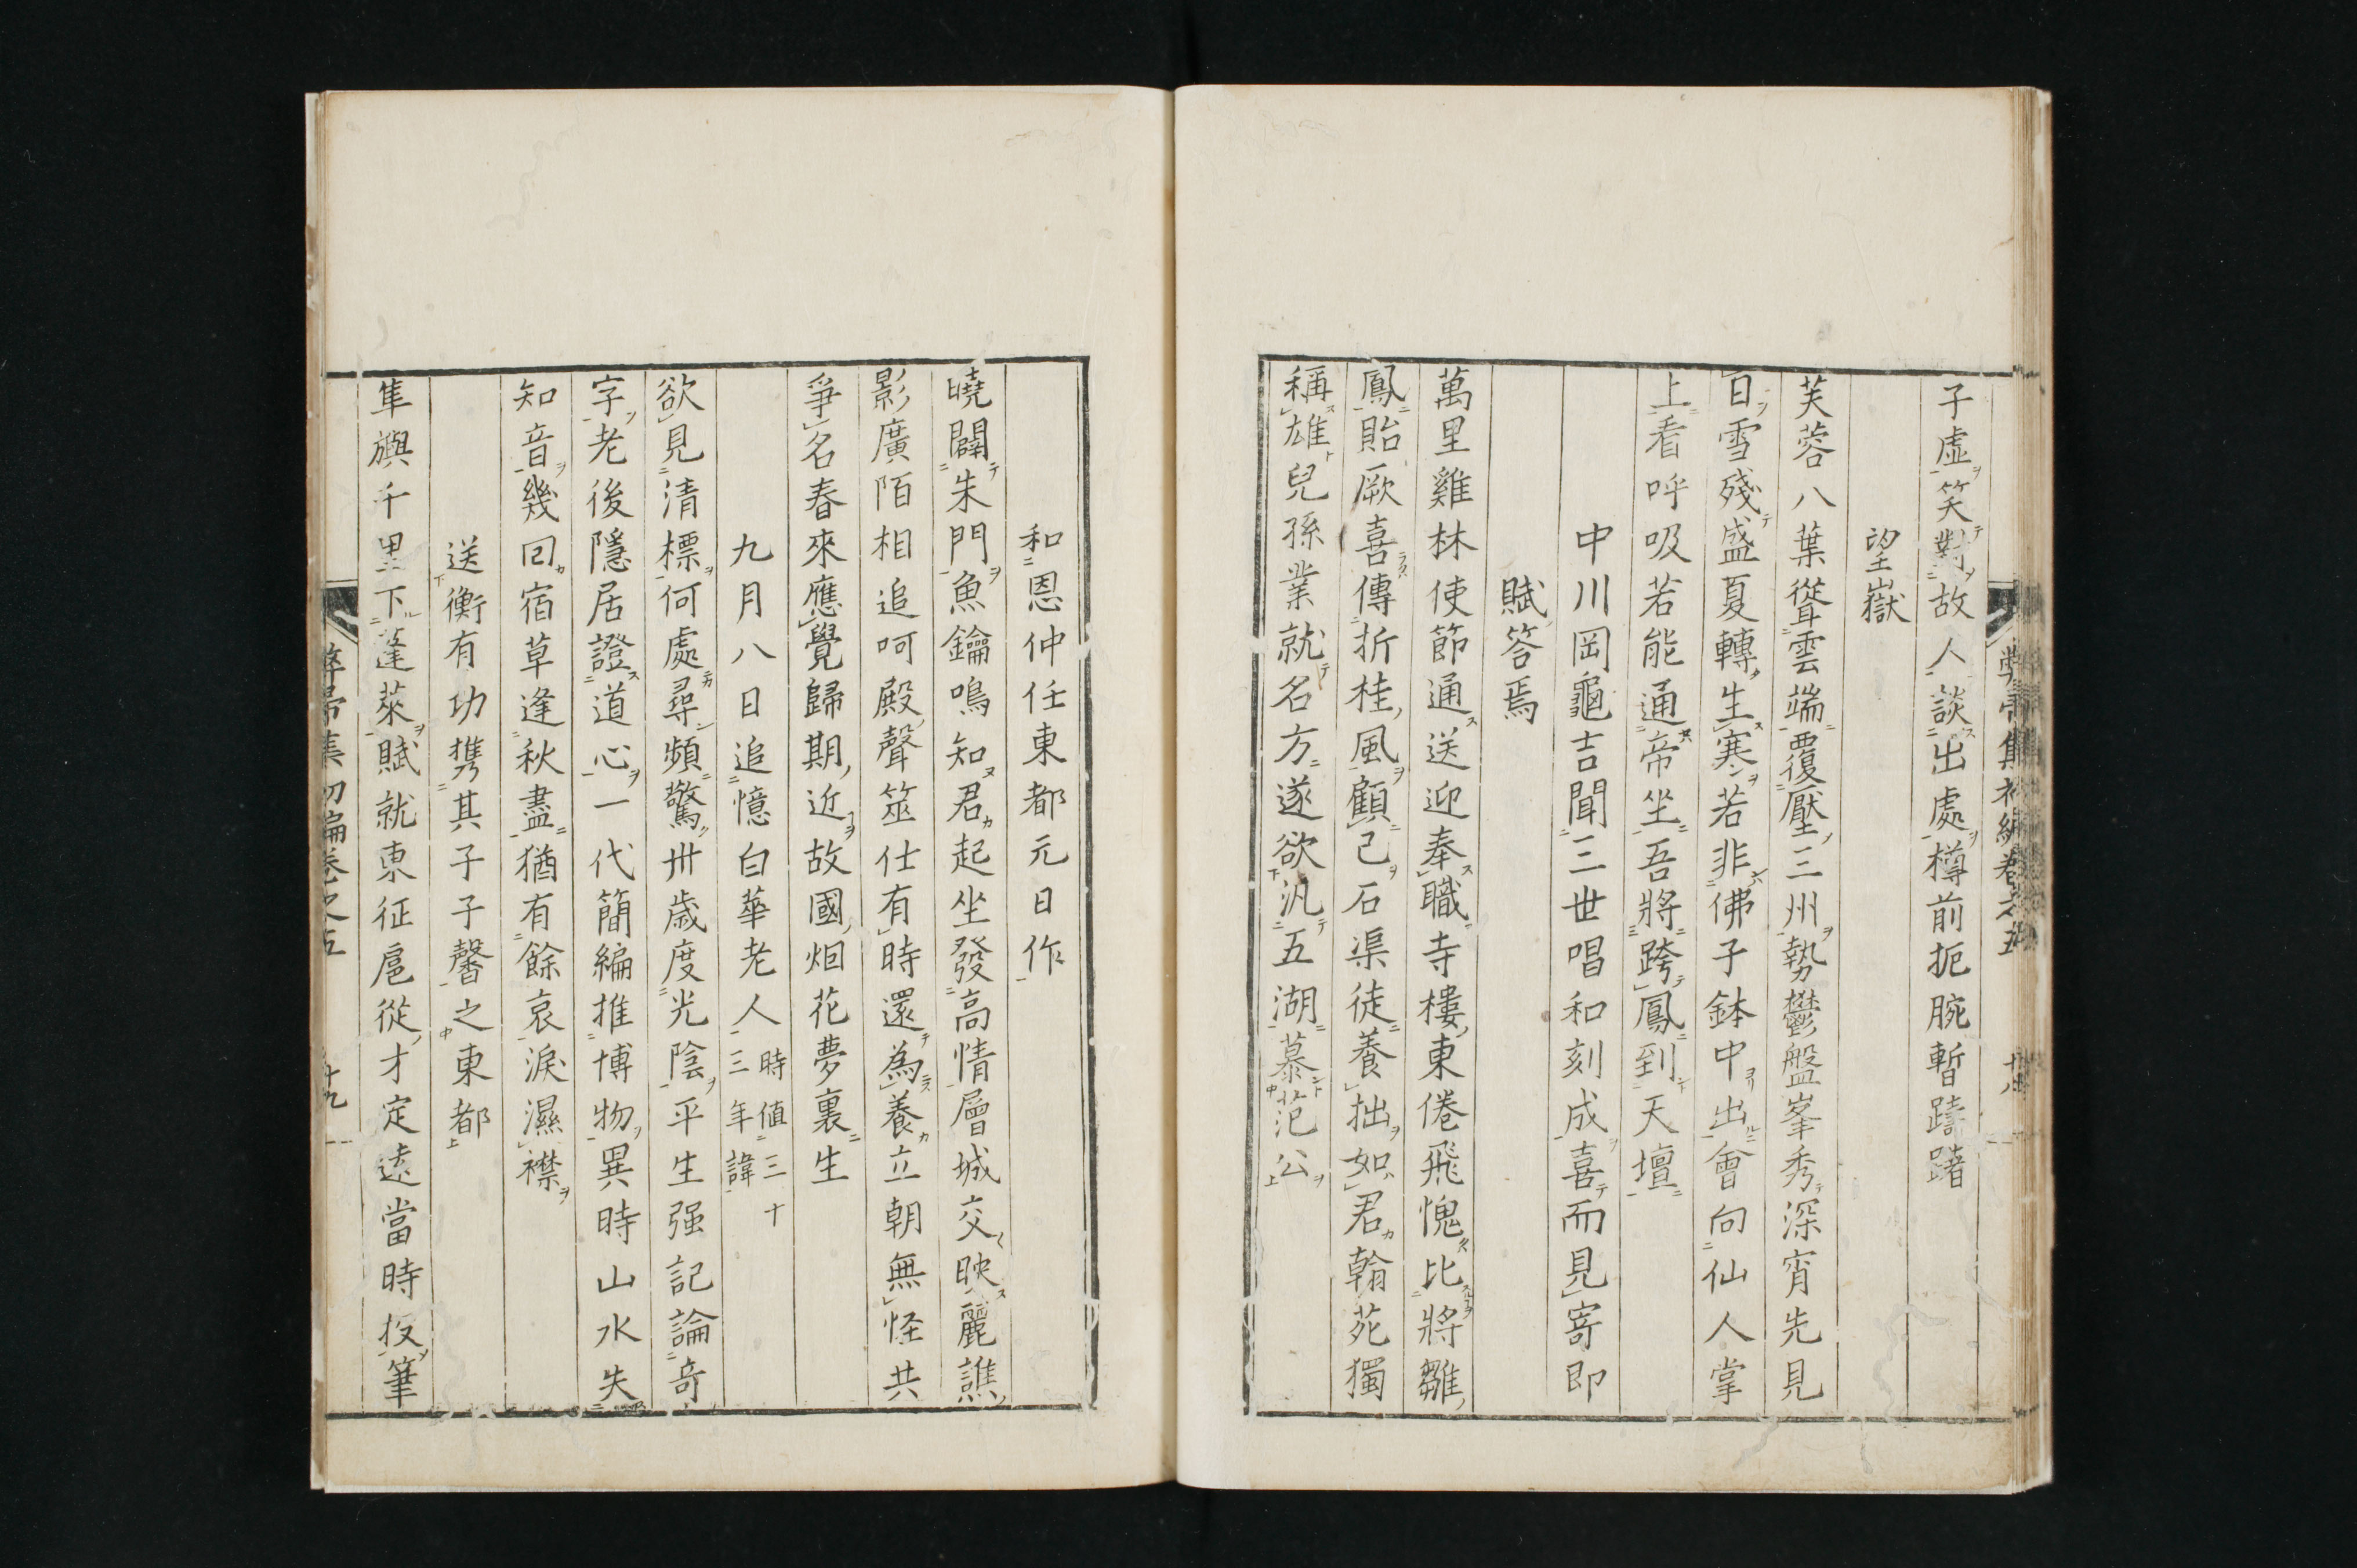 子虛笑對故人談出處樽前扼腕暫躊躇
望嶽
芙蓉八葉聳雲端覆壓三州勢鬱盤峯秀深宵先見
日雪殘盛夏轉生寒若非佛子鉢中出會向仙人掌
上看呼吸若能通帝坐吾將跨鳳到天壇
中川岡龜吉聞三世唱和刻成喜而見寄即
賦答焉
萬里雞林使節通送迎奉職寺樓東倦飛愧比將雛
鳳貽厥喜傳折桂風顧己石渠徒養拙如君翰苑獨
稱雄兒孫業就名方遂欲汎五湖慕范公
和恩仲任東都元日作
曉闢朱門魚鑰鳴知君起坐發高情層城交映麗譙
影廣陌相追呵殿聲筮仕有時還為養立朝無怪共
爭名春來應覺歸期近故國烟花夢裏生
九月八日追憶白華老人時值三十三年諱
欲見清標何處尋頻驚卅歲度光陰平生强記論奇
字老後隱居證道心一代簡編推博物異時山水失
知音幾回宿草逢秋盡猶有餘哀淚濕襟
送衡有功携其子子馨之東都
隼旟千里下蓬萊賦就東征扈從才定遠當時投筆